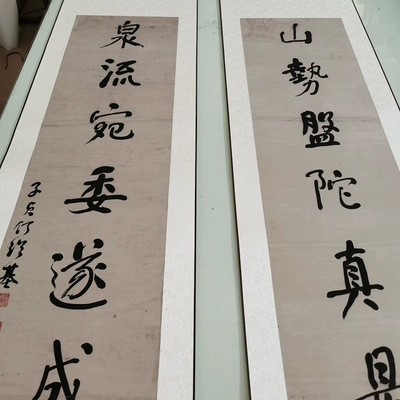 山勢盤陀真是
泉流宛委遂成
子貞何紹基